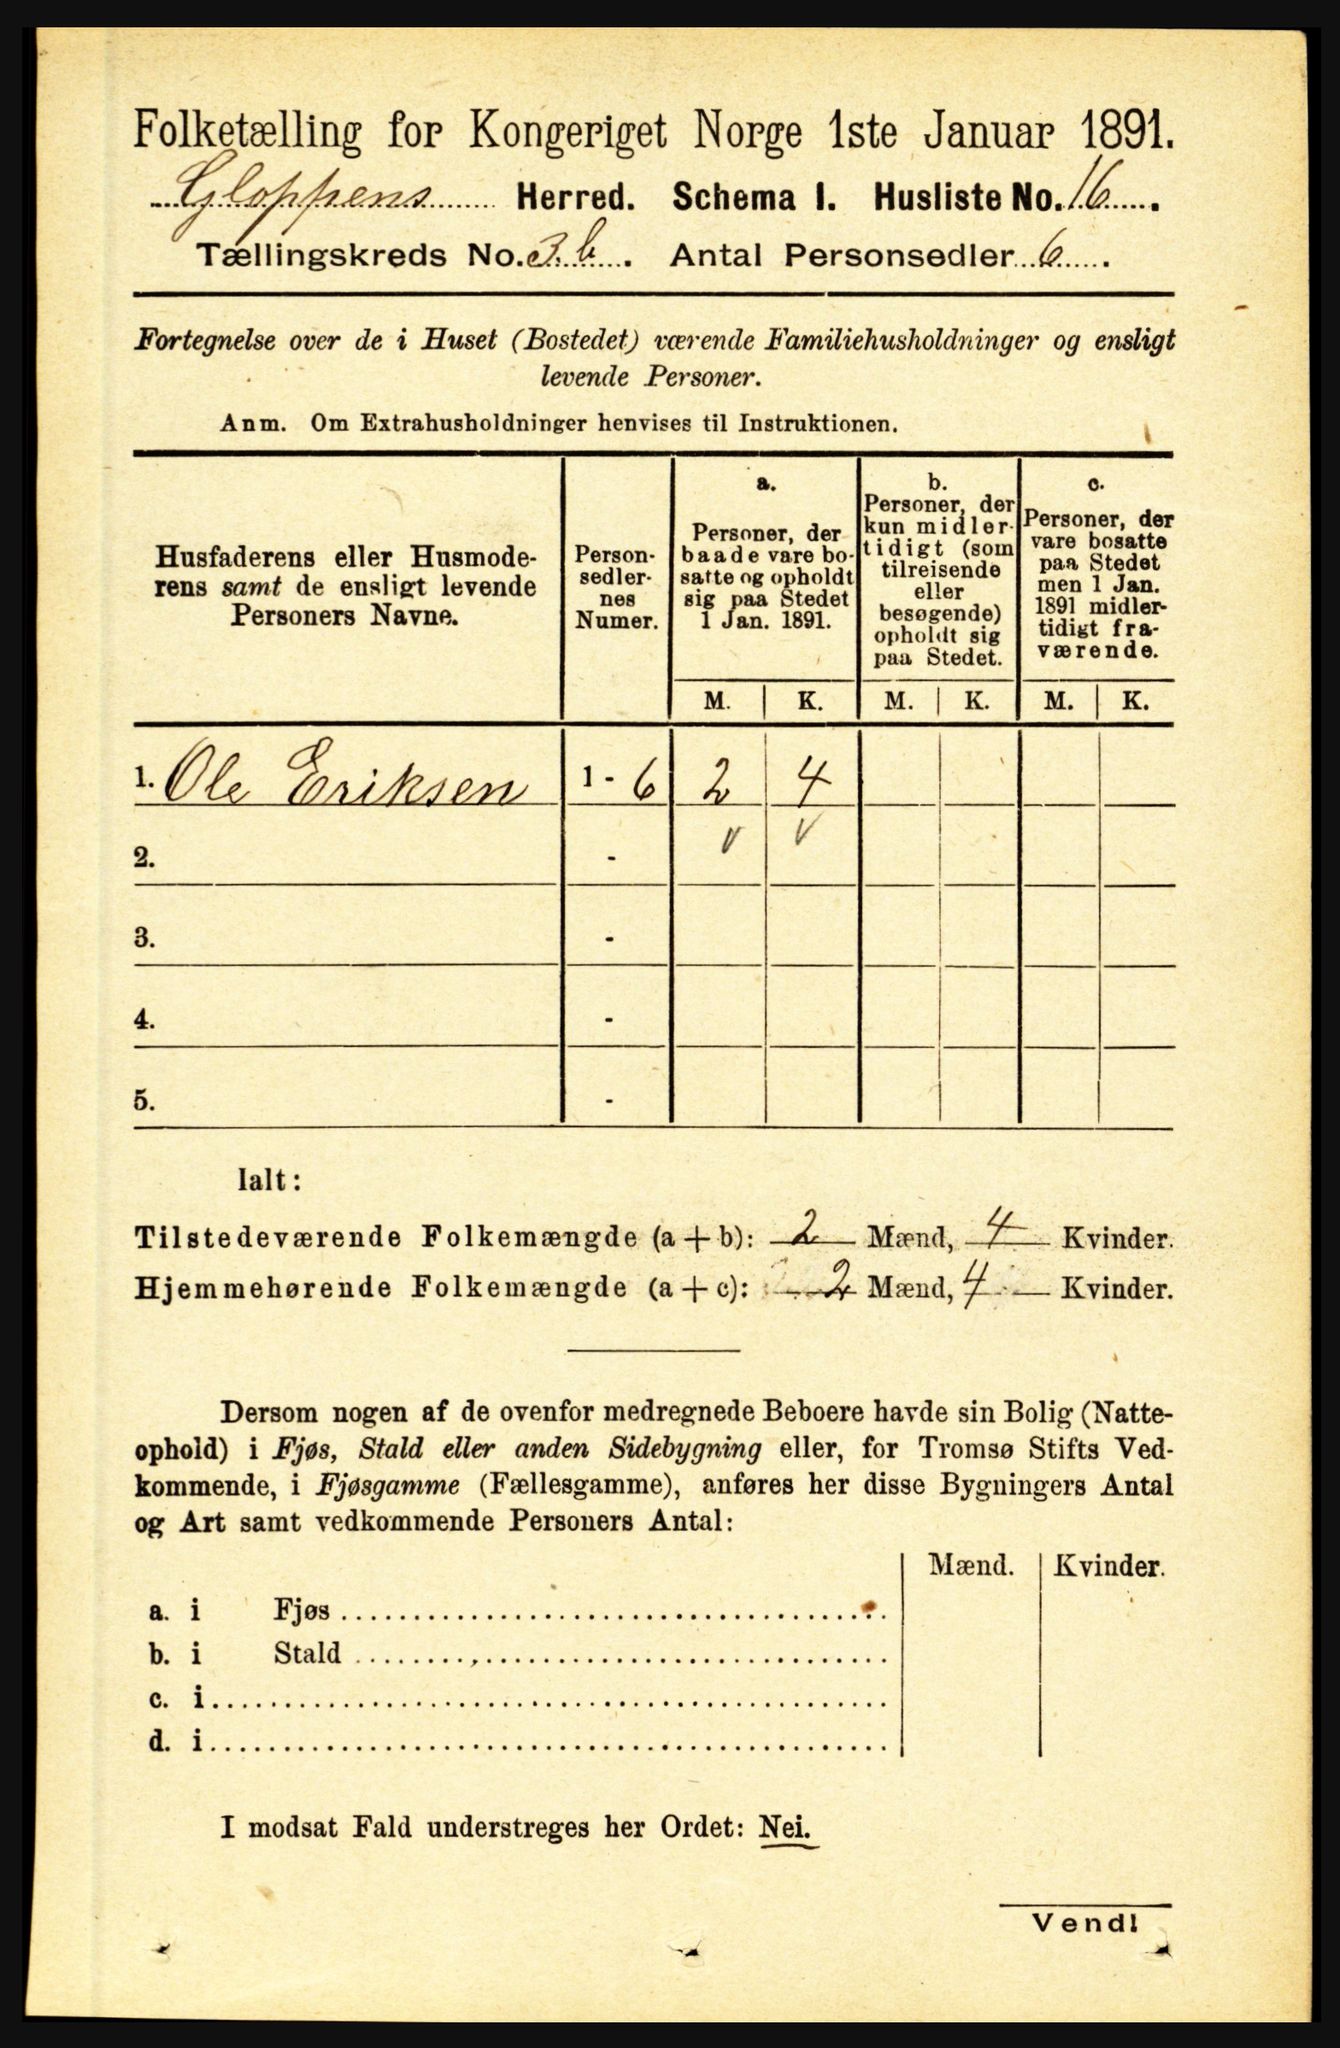 Folketælling for Kongeriget Norge 1ste Januar 1891.
Gloppens Herred. Schema I. Husliste No. 16.
Tællingskreds No. 3 b. Antal Personsedler 6.
Fortegnelse over de i Huset (Bostedet) værende Familiehusholdninger og ensligt
levende Personer.
Anm. Om Extrahusholdninger henvises til Instruktionen.
Husfaderens eller Husmode-
rens samt de ensligt levende
Personers Navne.
Person-
sedler-
nes
Numer.
a.
Personer, der
baade vare bo-
satte og opholdt
sig paa Stedet
1 Jan. 1891.
b.
Personer, der
kun midler-
tidigt (som
tilreisende
eller
besøgende)
opholdt sig
paa Stedet.
c.
Personer, der
vare bosatte
paa Stedet
men 1 Jan.
1891 midler-
tidigt fra-
værende.
M. K. M. K. M. K.
1. Ole Eriksen 1 - 6 2 4
2. - v v
3. -
4. -
5. -
Ialt:
Tilstedeværende Folkemængde (a + b): 2 Mænd, 4 Kvinder.
Hjemmehørende Folkemængde (a + c): 2 Mænd, 4 Kvinder.
Dersom nogen af de ovenfor medregnede Beboere havde sin Bolig (Natte-
ophold) i Fjøs, Stald eller anden Sidebygning eller, for Tromsø Stifts Ved-
kommende, i Fjøsgamme (Fællesgamme), anføres her disse Bygningers Antal
og Art samt vedkommende Personers Antal:
Mænd. Kvinder.
a. i Fjøs
b. i Stald
c. i
d. i
I modsat Fald understreges her Ordet: Nei.
Vend!